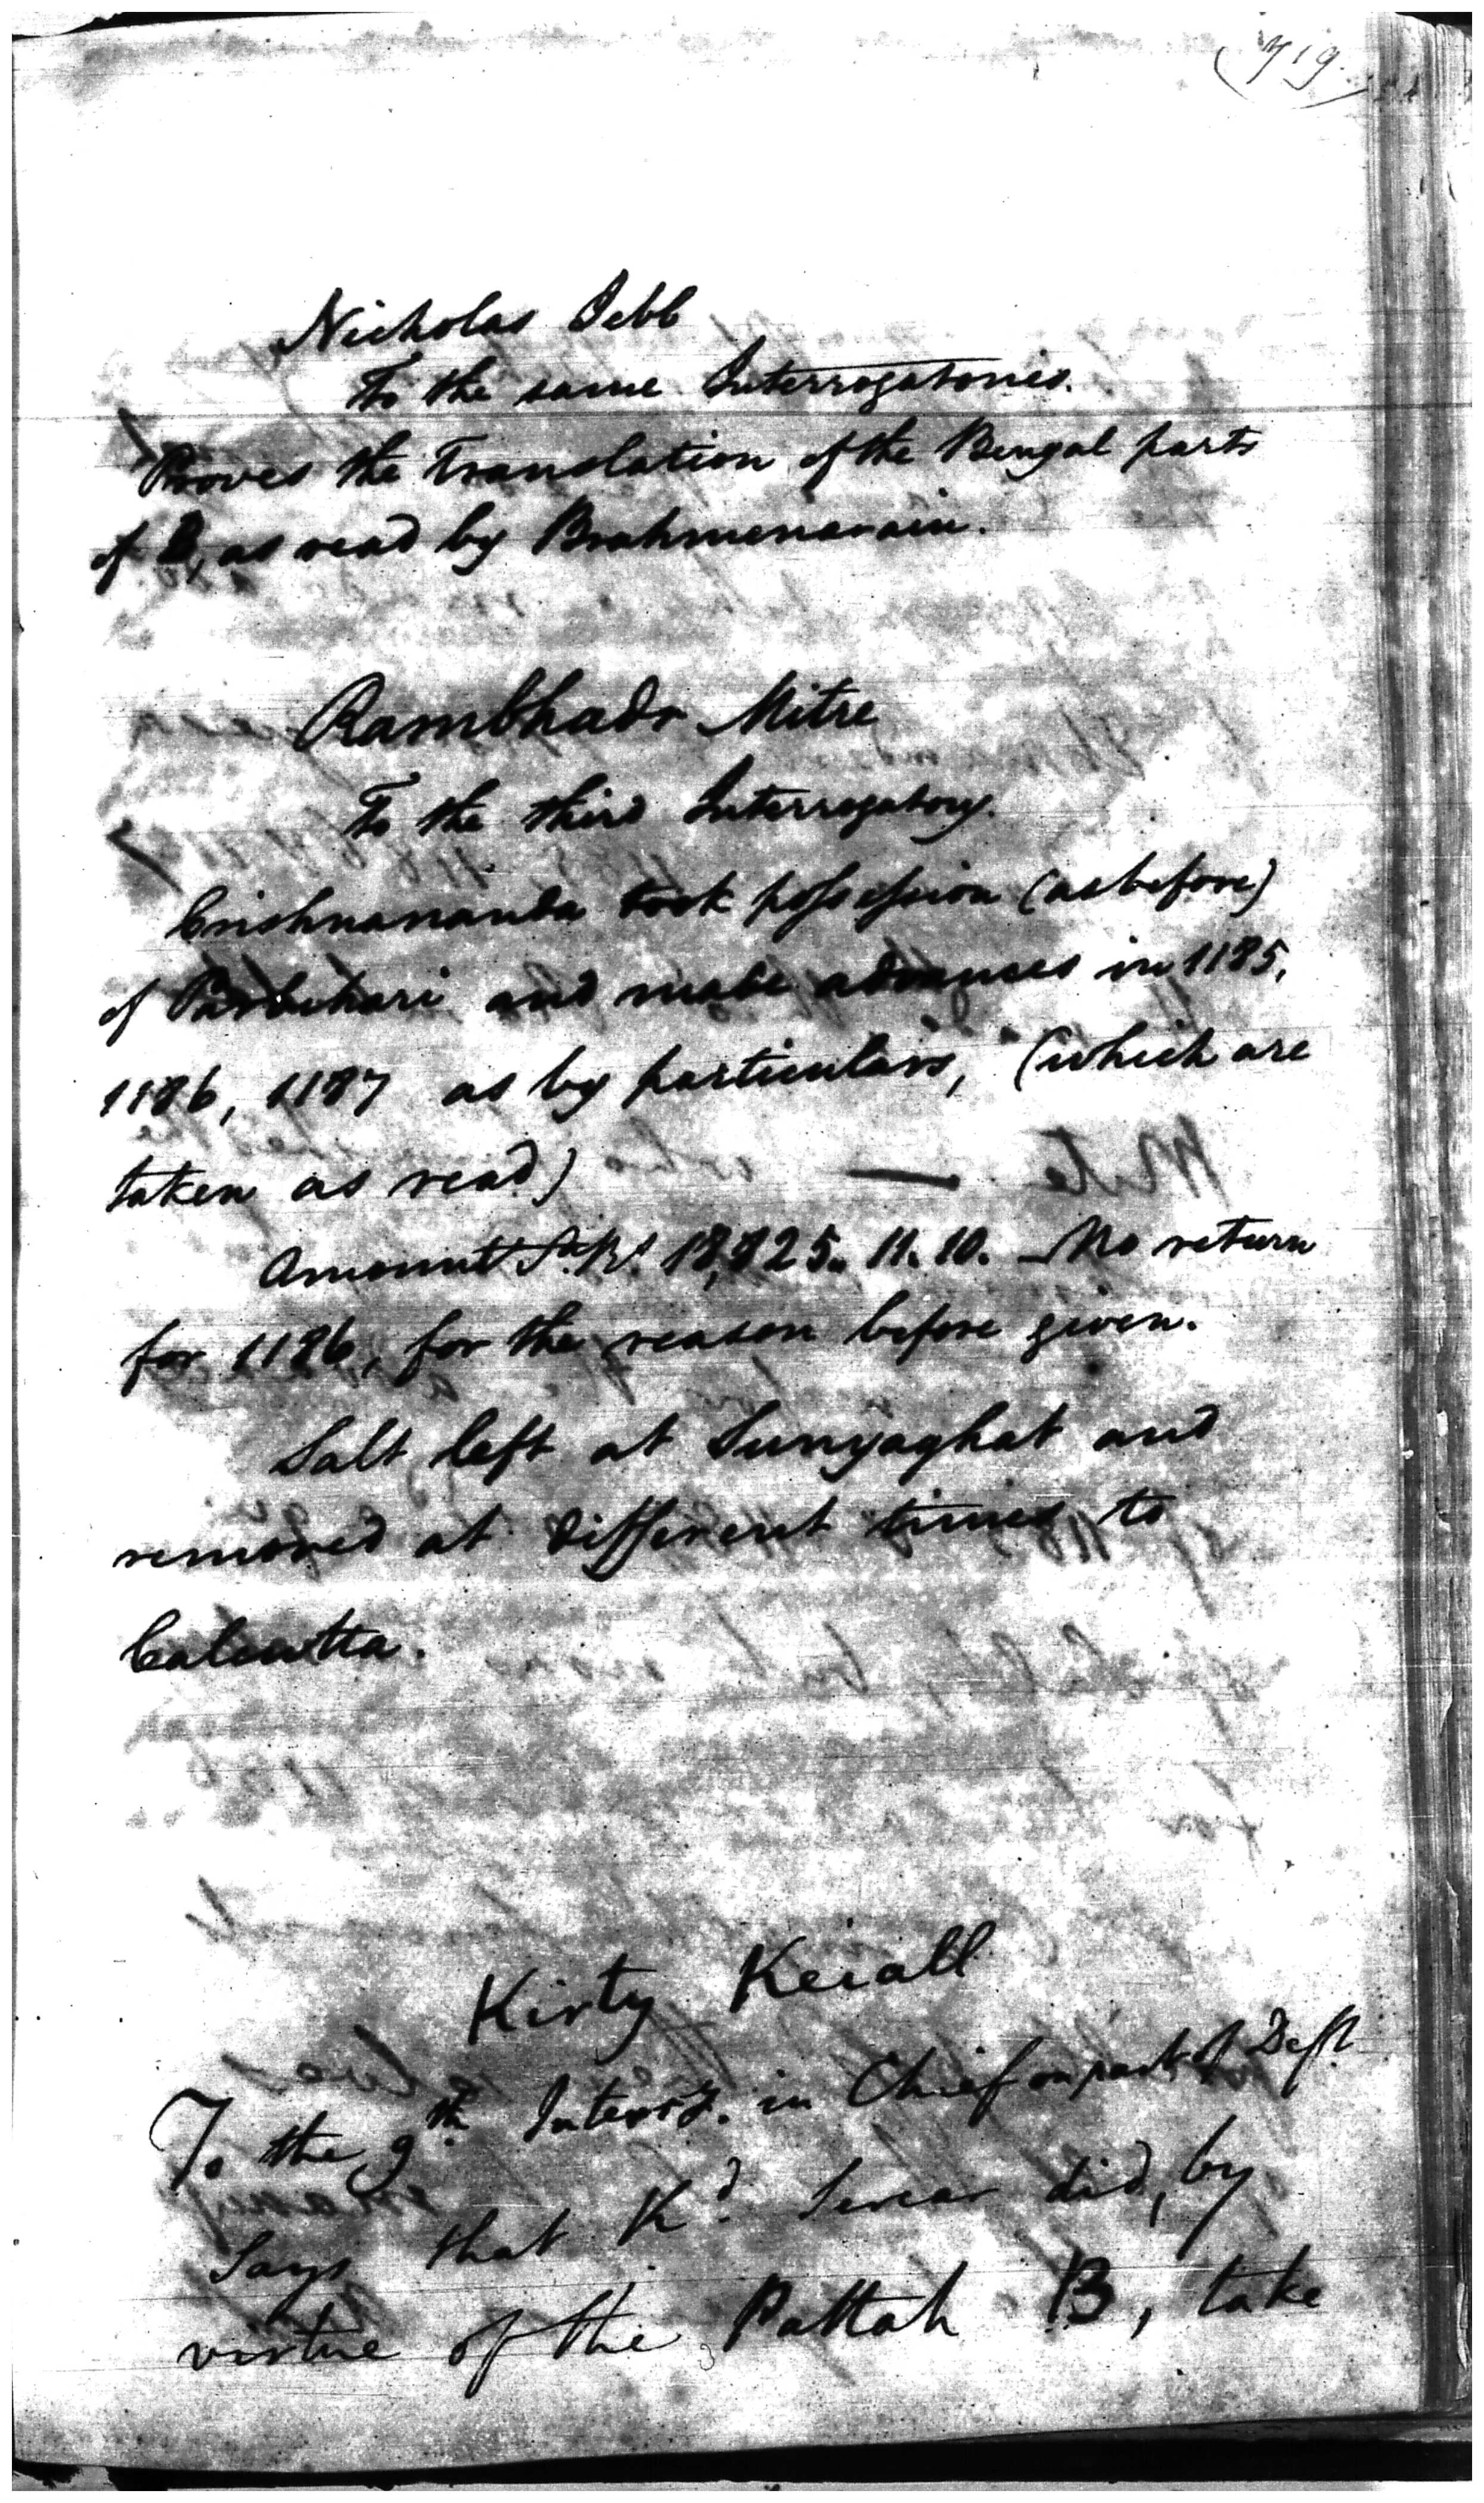 719
Nicholas Jebb
To the same Interrogatories.
Proves the Translation of the Bengal parts
of B, as read by Brahmenarain.
Rambhadr Mitre
To the third Interrogatory.
Crishnananda took possession (as before)
of and made advances in 1185,
1186, 1187 as by particulars, (which are
taken as read)
Amount S.Rs 18,825. 11. 10. No return
for 1186, for the reason before given.
Salt left at Sunyaghat and
removed at different times to
Calcutta.
Kirty Keiall
To the 9th Interry. in Chief on part of Deft
Says that Kd. Sircar did, by
virtue of the Pattah B, take